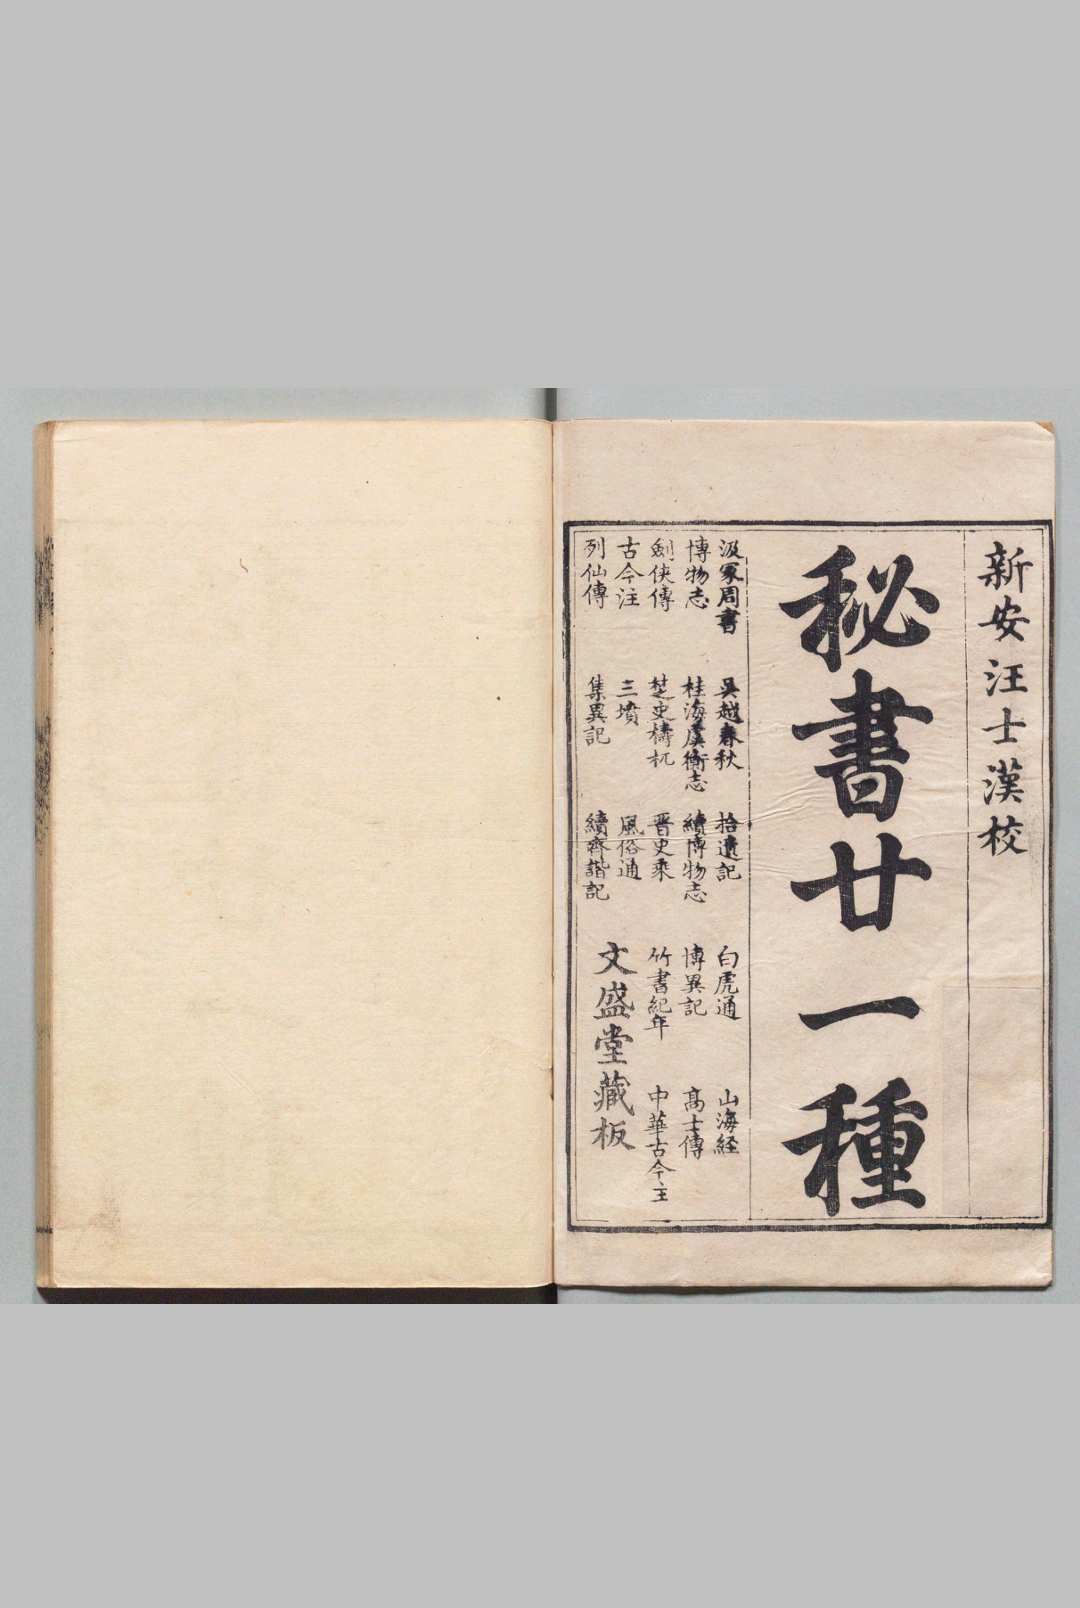 新安汪士漢校
秘書廿一種
汲冢周書 吳越春秋 拾遺記 白虎通 山海経
博物志 桂海虞衡志 續博物志 博異記 高士傳
劍俠傳 楚史檮杌 晋史乘 竹書紀年 中華古今注
古今注 三墳 風俗通
列仙傳 集異記 續齊諧記
文盛堂藏板